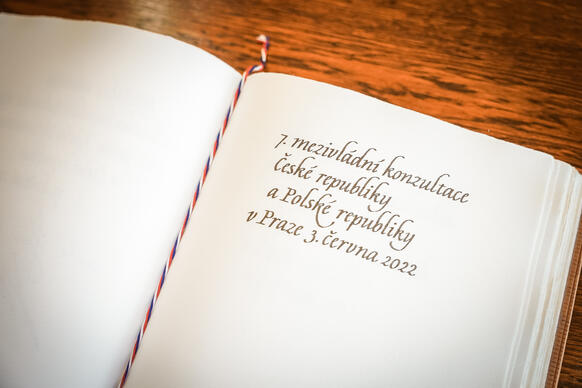 7. mezivládní konzultace
české republiky
a Polské republiky
v Praze 3. června 2022